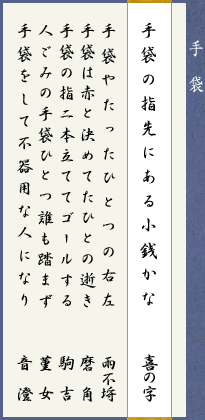 手袋
手袋の指先にある小銭かな 喜の字
手袋やたったひとつの右左 雨不埒
手袋は赤と決めてたひとの逝き 磨角
手袋の指二本立ててゴールする 駒吉
人ごみの手袋ひとつ誰も踏まず 菫女
手袋をして不器用な人になり 音澄